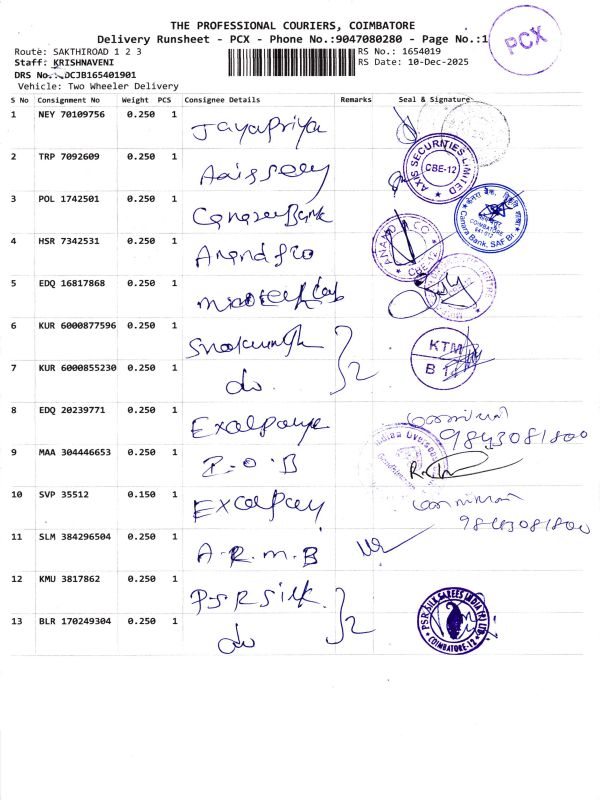 THE PROFESSIONAL COURIERS, COIMBATORE
Delivery Runsheet - PCX - Phone No.:9047080280 - Page No.:1
PCX
Route: SAKTHIROAD 1 2 3
RS No.: 1654019
Staff: KRISHNAVENI
RS Date: 10-Dec-2025
DRS No.: DCJB165401901
Vehicle: Two Wheeler Delivery
S No Consignment No Weight PCS Consignee Details Remarks Seal & Signature
1 NEY 70109756 0.250 1 Jayapriya
2 TRP 7092609 0.250 1
AXIS SECURITIES LIMITED CBE-12
3 POL 1742501 0.250 1 Canara Bank
COIMBATORE
Canara Bank, SAF Br.
4 HSR 7342531 0.250 1 Anand & Co
ANAND & CO. CBE-12
5 EDQ 16817868 0.250 1
6 KUR 6000877596 0.250 1
KTM B 12
7 KUR 6000855230 0.250 1 do 2
8 EDQ 20239771 0.250 1
9843081800
9 MAA 304446653 0.250 1 I.O.B
Indian Overseas
10 SVP 35512 0.150 1
9843081800
11 SLM 384296504 0.250 1 A.R.M.B
12 KMU 3817862 0.250 1 PSR Silk.
13 BLR 170249304 0.250 1 do 2
PSR SILK SAREES INDIA (P) LTD. COIMBATORE-12